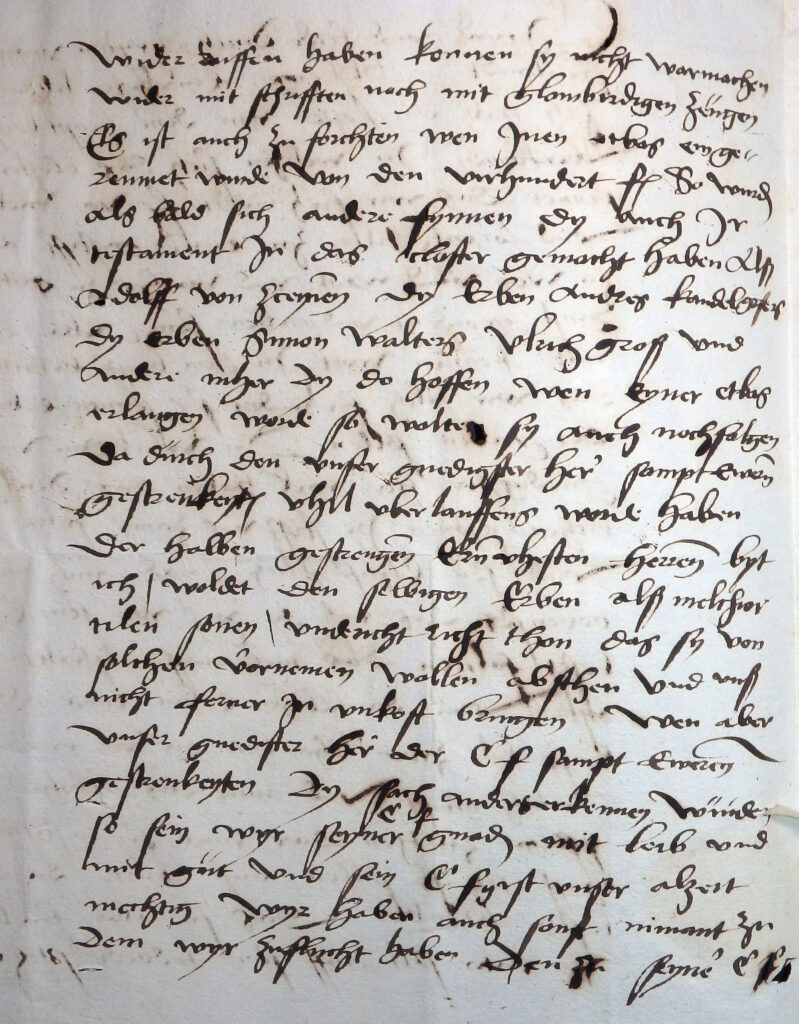 wider wissen haben konnen sy nicht warmachen
wider mit schrifften noch mit glombirdigen zeugen
Es ist auch zu forchten wen Inen etbas einge-
reumet wurde von den virhundert fl So wurdē
als bald sich andere fynnen dy auch Ir
testament In das closter gemacht haben Als
Adolff von dy Erben Andres
dy erben Simon Walters Ulrich groß und
andere mher dy do hoffen wen eyner etbas
erlangen worde so wolten sy auch nochfalgen
da durch den unser gnedigster her sampt Ewern
gestrenkeyten vhil uberlauffens worde haben
Der halben gestrengen Ernvhesten herren byt
ich woldet den selbigen Erben alß melchior
tilen sonen undericht thon das sy von
solchen vornemen wollen absthen und unß
nicht ferner In unkost bringen Wen aber
unser gnedister her der C f sampt Eweren
gestrenkeyten dy sach anders erkennen wurden
so sein wyr seyner C f gnadē mit leib und
mit gut und sein C fyrst unser alzeit
mechtig wyr haben auch sonst nimant zu
dem wyr zuflucht haben Den zu seyne C f